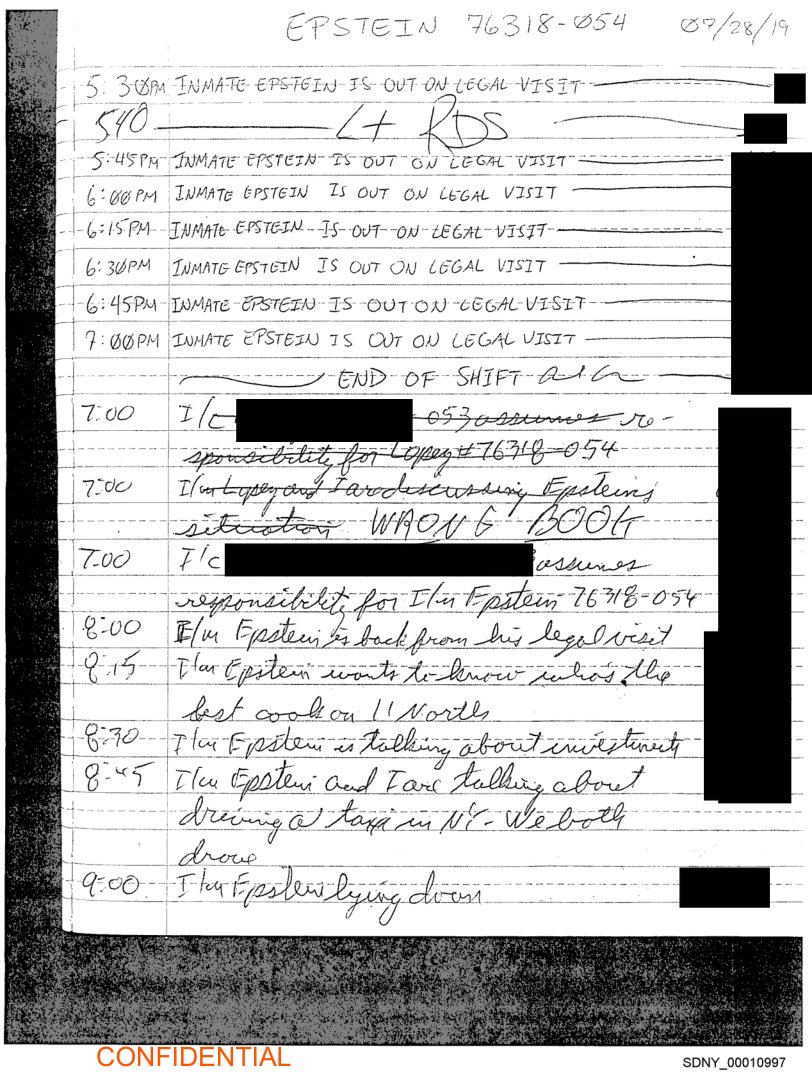 EPSTEIN 76318-054 07/28/19
5:30PM INMATE EPSTEIN IS OUT ON LEGAL VISIT
540 Lt RDS
5:45PM INMATE EPSTEIN IS OUT ON LEGAL VISIT
6:00PM INMATE EPSTEIN IS OUT ON LEGAL VISIT
6:15PM INMATE EPSTEIN IS OUT ON LEGAL VISIT
6:30PM INMATE EPSTEIN IS OUT ON LEGAL VISIT
6:45PM INMATE EPSTEIN IS OUT ON LEGAL VISIT
7:00PM INMATE EPSTEIN IS OUT ON LEGAL VISIT
END OF SHIFT
7:00 I/c 053 assumes re-
sponsibility for Lopez #76318-054
7:00 I/m Lopez and I are discussing Epsteins
situation WRONG BOOK
7:00 I/c assumes
responsibility for I/m Epstein 76318-054
8:00 I/m Epstein is back from his legal visit
8:15 I/m Epstein wants to know who's the
best cook on 11 North
8:30 I/m Epstein is talking about investments
8:45 I/m Epstein and I are talking about
driving a taxi in NY - We both
drove
9:00 I/m Epstein lying down
CONFIDENTIAL
SDNY_00010997